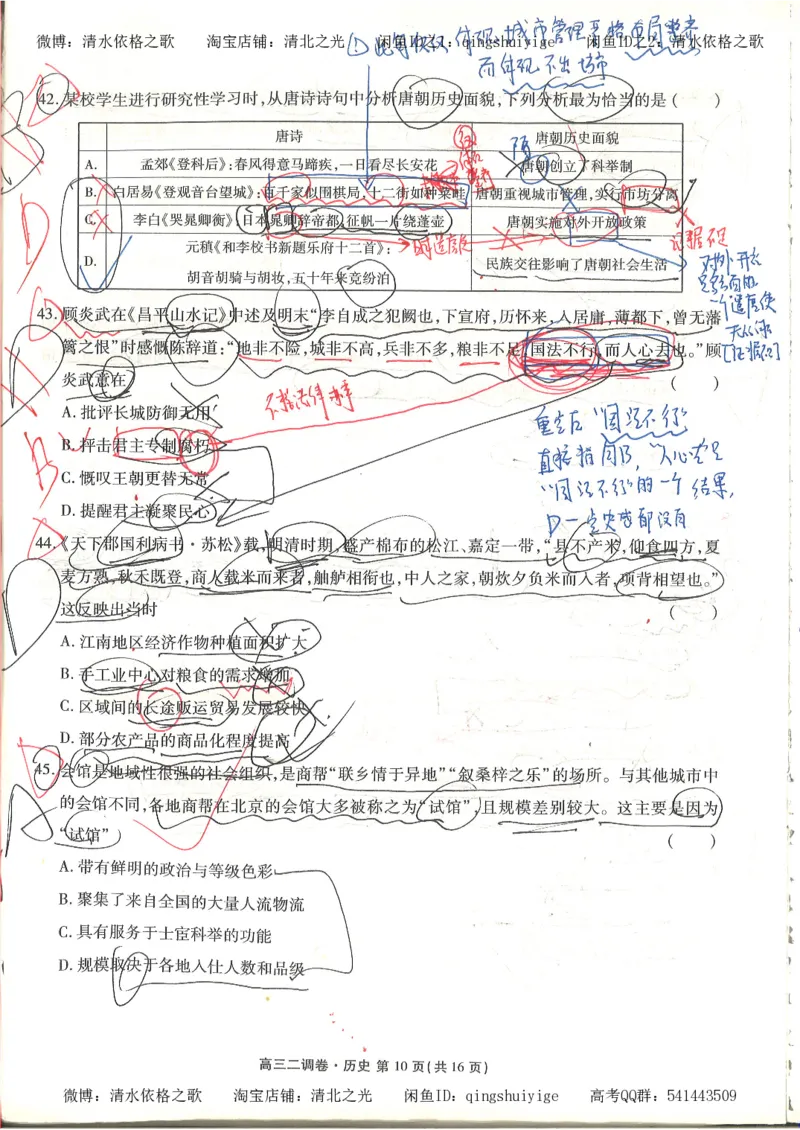 微博：清水依格之歌 淘宝店铺：清北之光 闲鱼ID之1：qingshuiyige 闲鱼ID之2：清水依格之歌
而体现不出坊市
42. 某校学生进行研究性学习时，从唐诗诗句中分析唐朝历史面貌，下列分析最为恰当的是（ ）
唐诗 唐朝历史面貌
A. 孟郊《登科后》：春风得意马蹄疾，一日看尽长安花 唐朝创立了科举制
隋
B. 白居易《登观音台望城》：百千家似围棋局，十二街如种菜畦 唐朝重视城市管理，实行市坊分离
C. 李白《哭晁卿衡》：日本晁卿辞帝都，征帆一片绕蓬壶 唐朝实施对外开放政策
D. 元稹《和李校书新题乐府十二首》：
胡音胡骑与胡妆，五十年来竞纷泊 民族交往影响了唐朝社会生活
D
43. 顾炎武在《昌平山水记》中述及明末“李自成之犯阙也，下宣府，历怀来，入居庸，薄都下，曾无藩
篱之恨”时感慨陈辞道：“地非不险，城非不高，兵非不多，粮非不足，国法不行，而人心去也。”顾
炎武意在 （ ）
A. 批评长城防御无用
B. 抨击君主专制腐朽
C. 慨叹王朝更替无常
D. 提醒君主凝聚民心
B
重点在“国法不行”
44. 《天下郡国利病书·苏松》载，明清时期，盛产棉布的松江、嘉定一带，“县不产米，仰食四方，夏
麦方熟，秋禾既登，商人载米而来者，舳舻相衔也，中人之家，朝炊夕负米而入者，项背相望也。”
这反映出当时 （ ）
A. 江南地区经济作物种植面积扩大
B. 手工业中心对粮食的需求增加
C. 区域间的长途贩运贸易发展较快
D. 部分农产品的商品化程度提高
45. 会馆是地域性很强的社会组织，是商帮“联乡情于异地”“叙桑梓之乐”的场所。与其他城市中
的会馆不同，各地商帮在北京的会馆大多被称之为“试馆”，且规模差别较大。这主要是因为
“试馆” （ ）
A. 带有鲜明的政治与等级色彩
B. 聚集了来自全国的大量人流物流
C. 具有服务于士宦科举的功能
D. 规模取决于各地入仕人数和品级
高三二调卷·历史 第10页（共16页）
微博：清水依格之歌 淘宝店铺：清北之光 闲鱼ID：qingshuiyige 高考QQ群：541443509